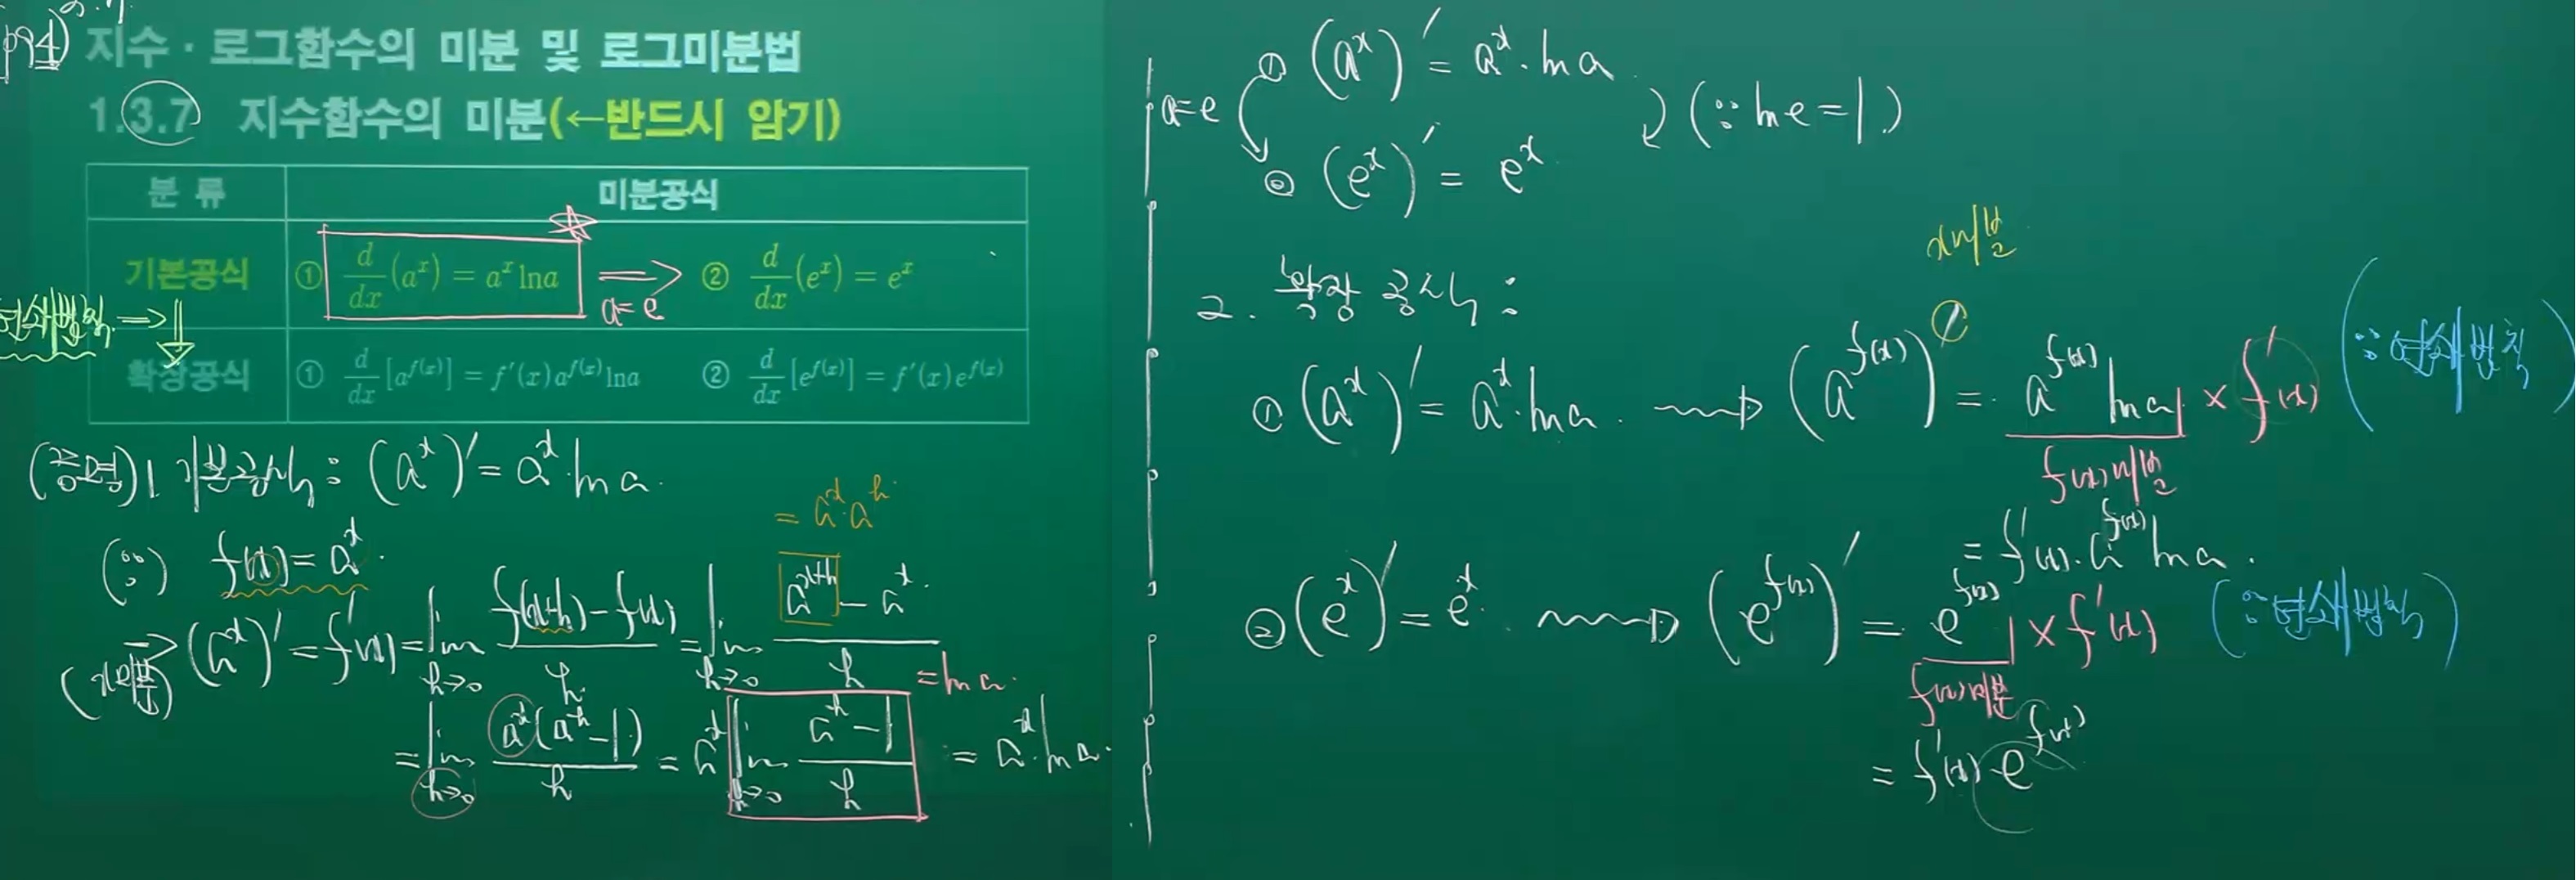 p94) 지수·로그함수의 미분 및 로그미분법
1.3.7 지수함수의 미분(←반드시 암기)
분 류 미분공식
기본공식 ① d/dx (aˣ) = aˣ ln a ⇒ a=e ② d/dx (eˣ) = eˣ
연쇄법칙 ⇒ ⇓
확장공식 ① d/dx [a^{f(x)}] = f'(x) a^{f(x)} ln a ② d/dx [e^{f(x)}] = f'(x) e^{f(x)}
(증명) 1. 기본공식 : (aˣ)' = aˣ · ln a.
(∵) f(x) = aˣ.
= aˣ·aʰ
⇒ (aˣ)' = f'(x) = lim_{h→0} (f(x+h) − f(x))/h = lim_{h→0} (a^{x+h} − aˣ)/h
(x미분)
= ln a.
= lim_{h→0} aˣ(aʰ − 1)/h = aˣ lim_{h→0} (aʰ − 1)/h = aˣ · ln a.
① (aˣ)' = aˣ · ln a
a=e ⤵ (∵ ln e = 1.)
② (eˣ)' = eˣ
2. 확장 공식 :
x미분
① (aˣ)' = aˣ · ln a. → (a^{f(x)})' = a^{f(x)} ln a × f'(x) (∵ 연쇄법칙)
f(x)미분
= f'(x) · a^{f(x)} ln a.
② (eˣ)' = eˣ. → (e^{f(x)})' = e^{f(x)} × f'(x) (∵ 연쇄법칙)
f(x)미분
= f'(x) · e^{f(x)}